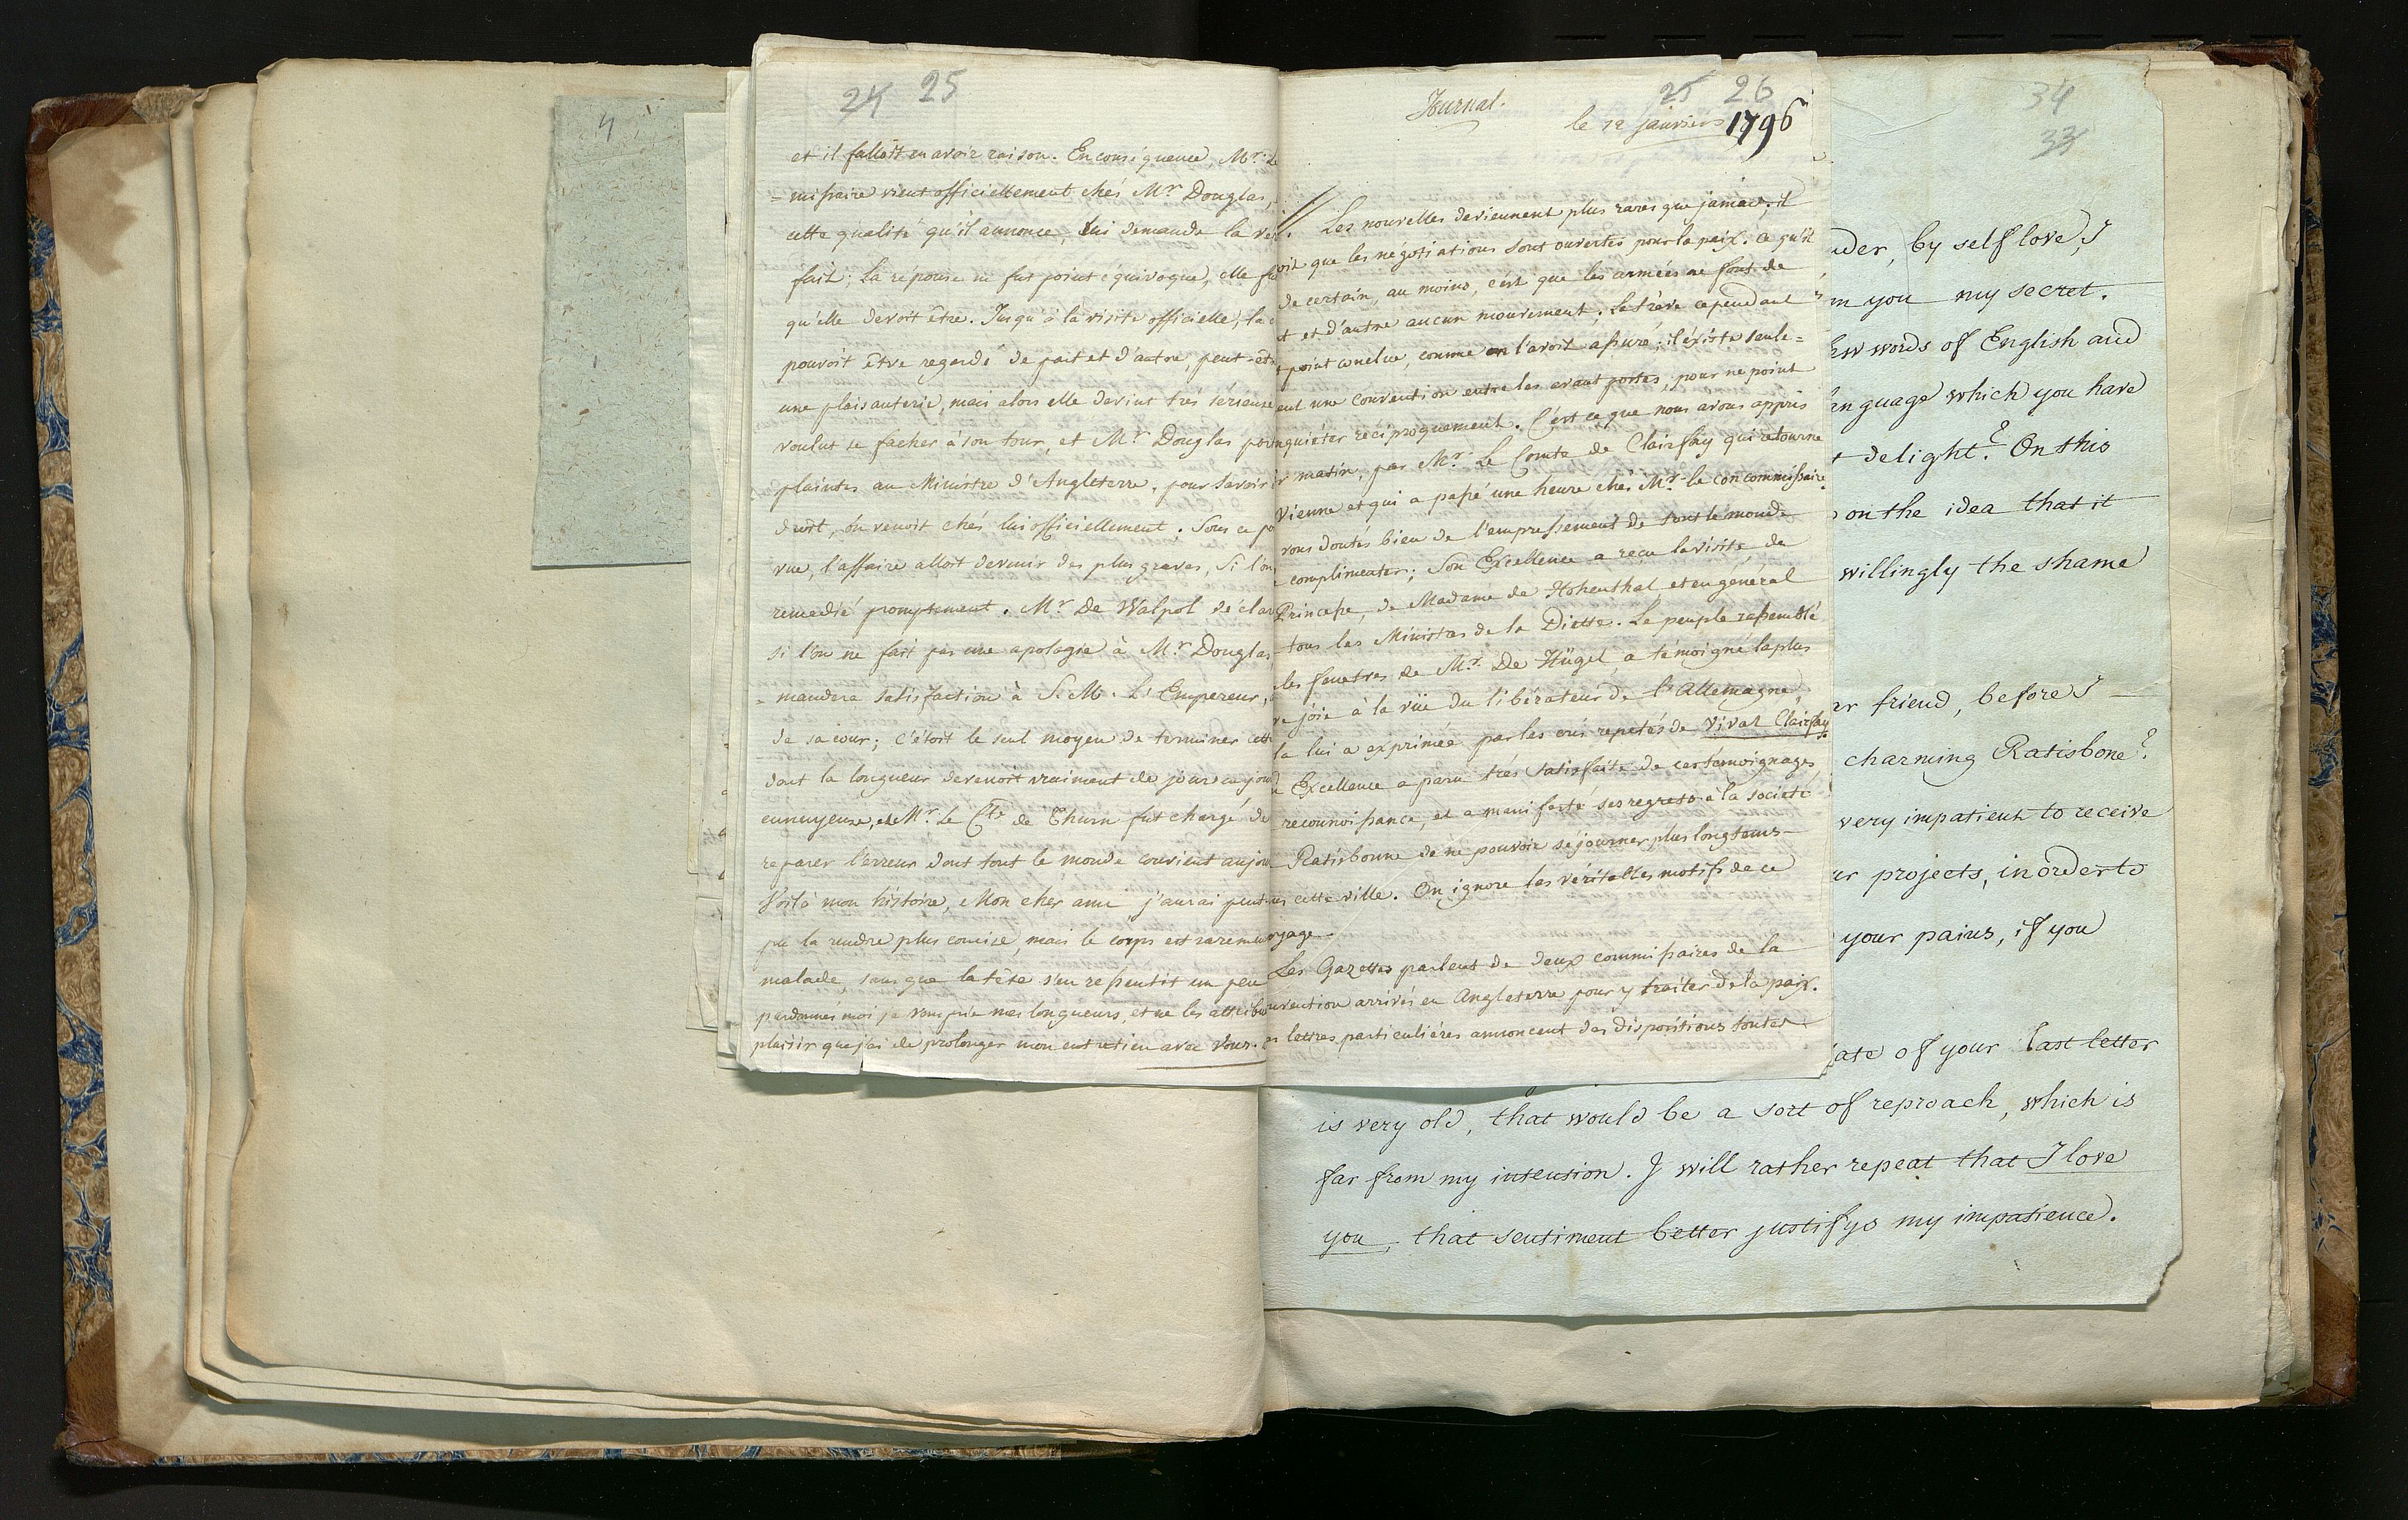 4
24 25
et il falloit en avoir raison. En conséquence, Mr. Le
=missaire vient officiellement chés Mr Douglas,
cette qualité qu'il annonce, lui demande la
fait; La réponse ne fut point équivoque, elle
qu'elle devoit être. Jusqu'à la visite officielle, la
pouvoit être regardé de part et d'autre, peut
une plaisanterie, mais alors elle devint trés sérieuse
voulut se facher à son tour, et Mr Douglas
plaintes au Ministre d'Angleterre, pour savoir
droit, on venoit chés lui officiellement. Sous ce
vue, l'affaire alloit devenir des plus graves, Si l'on
remedié promptement. Mr De Walpol
si l'on ne fait pas une apologie à Mr Douglas,
=mandera satisfaction à S. M. L'Empereur,
de sa cour; c'étoit le seul moyen de terminer cette
dont la longueur devenoit vraiment de jour en jour
ennuyeuse, et Mr. Le Cte de Thurn fut chargé de
reparer l'erreur dont tout le monde convient
Voilà mon histoire, Mon cher ami j'aurai peut
pu la rendre plus concise, mais le corps est
malade, sans que la tête s'en ressentit un peu
pardonnés moi je vous prie mes longueurs, et ne les
plaisir que j'ai de prolonger mon entretien avec vous.
Journal. 25 26
le 12 janviers 1796
// Les nouvelles deviennent plus rares que jamais; il
que les négotiations sont ouvertes pour la paix. ce qu'il
de certain, au moins, c'est que les armées ne font de
et d'autre aucun mouvement; La trève cependant
point conclue, comme on l'avoit assuré; il existe seule=
une convention entre les avant postes, pour ne point
réciproquement. C'est ce que nous avons appris
matin, par Mr. Le Comte de Clairfay qui retourne
Vienne et qui a passé une heure chés Mr. le concommissaire.
vous doutes bien de l'empressement de tout le monde
complimenter; Son Excellence a reçu la visite de
Princesse, de Madame de Hohenthal et en général
tous les Ministres de la Diette. Le peuple rassemblé
les fenetres de Mr. De Hügel a témoigné la plus
joie à la vüe du libérateur de l'Allemagne,
la lui a exprimée par les cris repetés de Vivat Clairfay.
Excellence a paru trés satisfaite de ces temoignages
reconnoissance, et a manifesté ses regrets à la société
Ratisbonne de ne pouvoir séjourner plus longtems
cette ville. On ignore les véritables motifs de ce

Les Gazettes parlent de deux commissaires de la
arrivés en Angleterre pour y traiter de la paix.
lettres particulières annoncent des dispositions toutes
34
33
by self love, I
you my secret.
words of English and
which you have
delight? On this
on the idea that it
willingly the shame
friend, before I
charming Ratisbone?
very impatient to receive
projects, in order to
your pains, if you
of your last letter
is very old, that would be a sort of reproach, which is
far from my intension. I will rather repeat that I love
you, that sentiment better justifys my impatience.